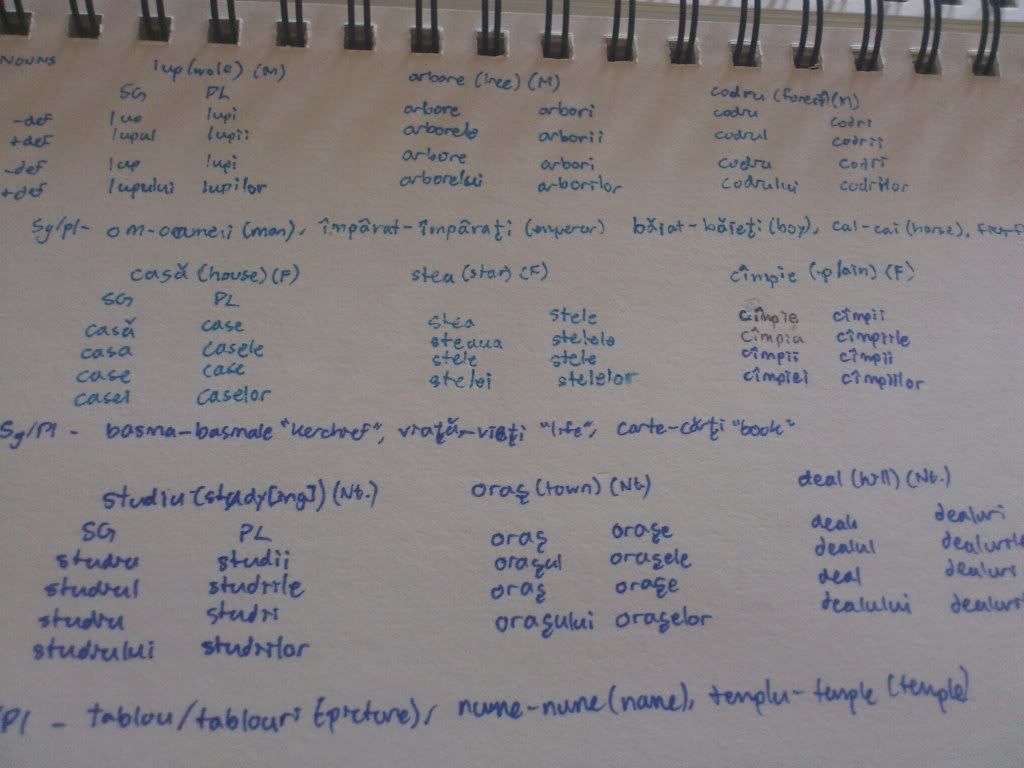 NOUNS
lup (wole) (M) arbore (tree) (M) codru (forest) (M)
SG PL
-def lup lupi arbore arbori codru codri
+def lupul lupii arborele arborii codrul codrii
-def lup lupi arbore arbori codru codri
+def lupului lupilor arborelui arborilor codrului codrilor
Sg/pl- om-oameni (man), împărat-împărați (emperor) băiat-băieți (boy), cal-cai (horse),
casă (house) (F) stea (star) (F) cîmpie (plain) (F)
SG PL
casă case stea stele cîmpie cîmpii
casa casele steaua stelele cîmpia cîmpiile
case case stele stele cîmpii cîmpii
casei caselor stelei stelelor cîmpiei cîmpiilor
Sg/Pl - basma-basmale "kerchief", viață-vieți "life", carte-cărți "book"
studiu (study[ing]) (Nt.) oraș (town) (Nt.) deal (hill) (Nt.)
SG PL
studiu studii oraș orașe deal dealuri
studiul studiile orașul orașele dealul
studiu studii oraș orașe deal dealuri
studiului studiilor orașului orașelor dealului
/Pl - tablou/tablouri (picture), nume-nume (name), templu-temple (temple)